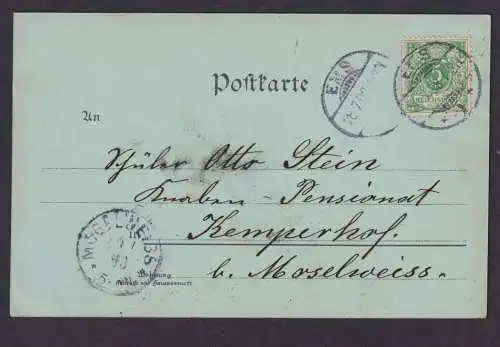 Postkarte
EMS
EMS
An
Schüler Otto Stein
Knaben-Pensionat
Kemperhof.
b. Moselweiss.
MOSELWEISS
Wohnung